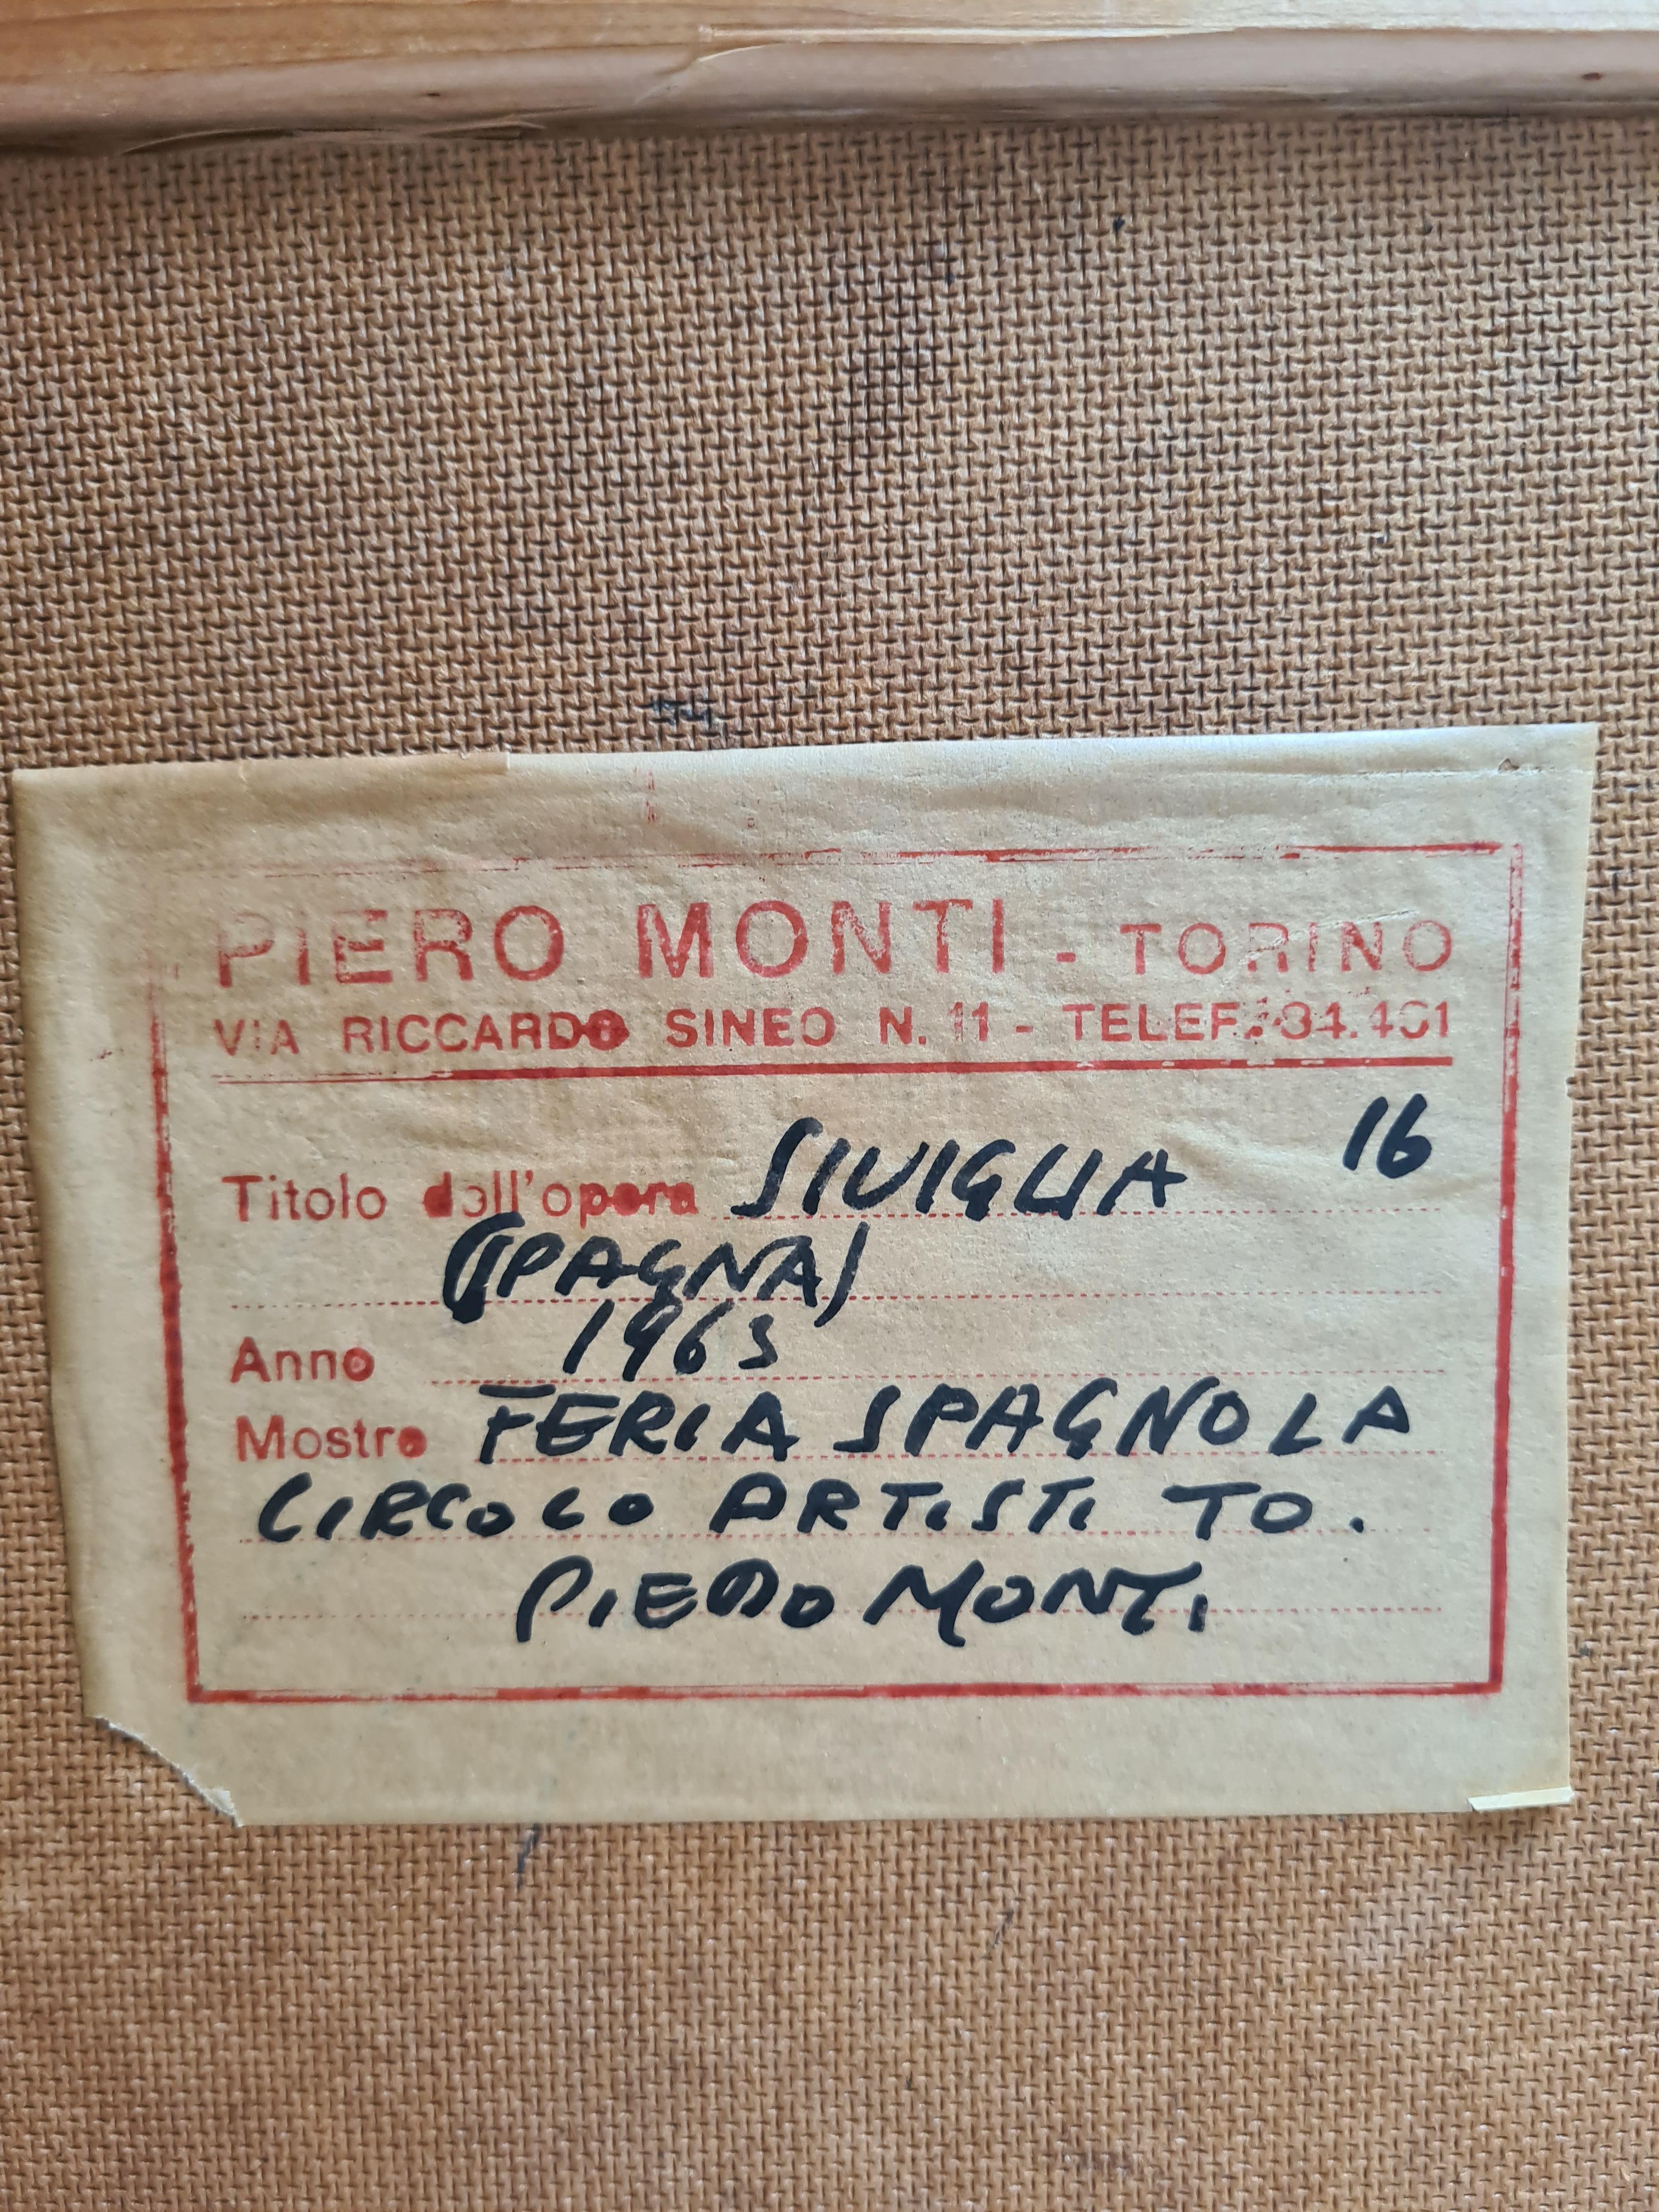 PIERO MONTI - TORINO
VIA RICCARDO SINEO N. 11 - TELEF.
16
Titolo dell'opera SIVIGLIA
(SPAGNA)
Anno 1963
Mostre FERIA SPAGNOLA
CIRCOLO ARTISTI TO.
PIERO MONTI